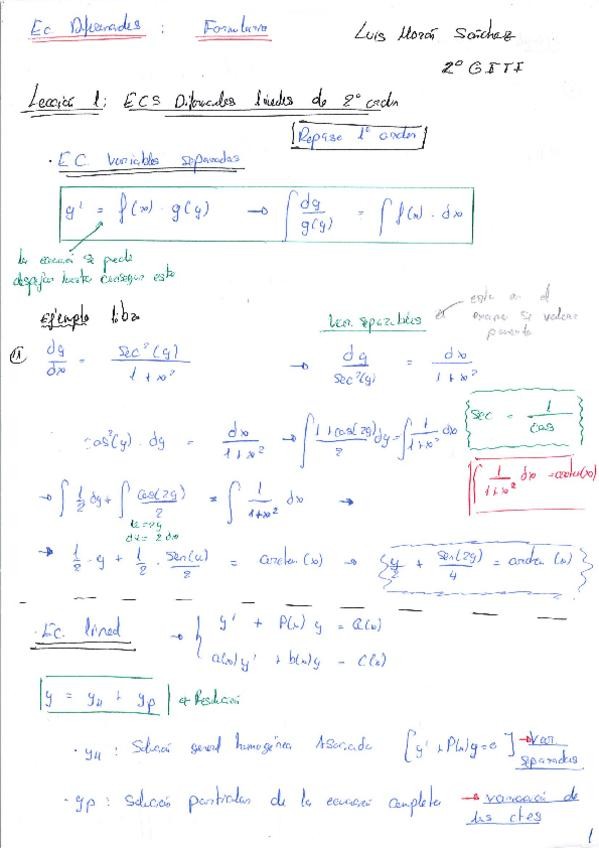 Ec Diferenciales : Formulario
Luis Morán Sánchez
2º G.I.T.I
Lección 1: ECS Diferenciales lineales de 2º orden
Repaso 1º orden
· EC. variables separadas
y' = f(x) · g(y) → ∫ dy/g(y) = ∫ f(x) · dx
la ecuación se puede
despejar hasta conseguir esto
Ejemplo libro
Var. separables
esto en el
examen se valora
① dy/dx = sec²(y)/(1+x²) → dy/sec²(y) = dx/(1+x²)
cos²(y) · dy = dx/(1+x²) → ∫ (1+cos(2y))/2 dy = ∫ 1/(1+x²) dx
sec = 1/cos
∫ 1/(1+x²) dx = arctan(x)
→ ∫ 1/2 dy + ∫ cos(2y)/2 = ∫ 1/(1+x²) dx →
u = 2y
du = 2 dx
→ 1/2 · y + 1/2 · sen(u)/2 = arctan(x) → y/2 + sen(2y)/4 = arctan(x)
· Ec. lineal → { y' + P(x) y = Q(x)
a(x) y' + b(x) y = C(x)
y = yH + yp
· yH : Solución general homogénea Asociada [y' + P(x) y = 0] → Var. separadas
· yp : Solución particular de la ecuación completa → variación de las ctes
1